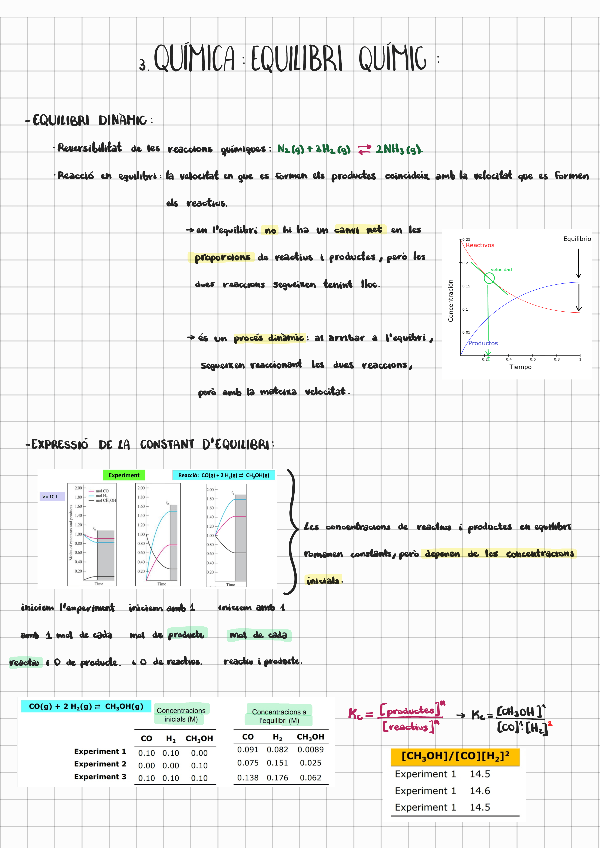 3. QUÍMICA: EQUILIBRI QUÍMIC:
- EQUILIBRI DINÀMIC:
· Reversibilitat de les reaccions químiques: N₂(g) + 3H₂(g) ⇄ 2NH₃(g).
· Reacció en equilibri: la velocitat en que es formen els productes coincideix amb la velocitat que es formen
els reactius.
→ en l'equilibri no hi ha un canvi net en les
proporcions de reactius i productes, però les
dues reaccions segueixen tenint lloc.
→ és un procés dinàmic: al arribar a l'equilibri,
segueixen reaccionant les dues reaccions,
però amb la mateixa velocitat.
Equilibrio
Reactivos
Concentración
Productos
Tiempo
- EXPRESSIÓ DE LA CONSTANT D'EQUILIBRI:
Experiment
Reacció: CO(g) + 2 H₂(g) ⇄ CH₃OH(g)
mol CO
mol H₂
mol CH₃OH
Time
Time
Time
Les concentracions de reactius i productes en equilibri
romanen constants, però depenen de les concentracions
inicials.
iniciem l'experiment
amb 1 mol de cada
reactiu i 0 de producte.
iniciem amb 1
mol de producte
i 0 de reactius.
iniciem amb 1
mol de cada
reactiu i producte.
CO(g) + 2 H₂(g) ⇄ CH₃OH(g)
Concentracions
inicials (M)
Concentracions a
l'equilibri (M)
CO H₂ CH₃OH CO H₂ CH₃OH
Experiment 1 0.10 0.10 0.00 0.091 0.082 0.0089
Experiment 2 0.00 0.00 0.10 0.075 0.151 0.025
Experiment 3 0.10 0.10 0.10 0.138 0.176 0.062
Kc = [productes]ⁿ / [reactius]ⁿ → Kc = [CH₃OH]¹ / [CO]¹·[H₂]²
[CH₃OH]/[CO][H₂]²
Experiment 1 14.5
Experiment 1 14.6
Experiment 1 14.5